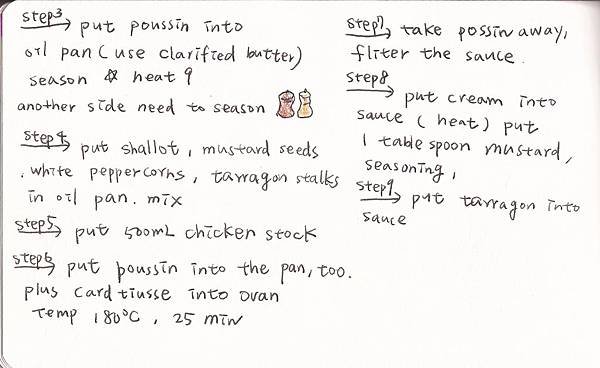 step3 put poussin into
oil pan (use clarified butter)
season & heat 9
another side need to season
step4 put shallot, mustard seeds
, white peppercorns, tarragon stalks
in oil pan. mix
step5 put 500mL chicken stock
step6 put poussin into the pan, too.
plus card tiusse into ovan
Temp 180°C, 25 min
step7 take possin away,
fliter the sauce.
step8 put cream into
sauce (heat) put
1 table spoon mustard,
seasoning,
step9 put tarragon into
sauce